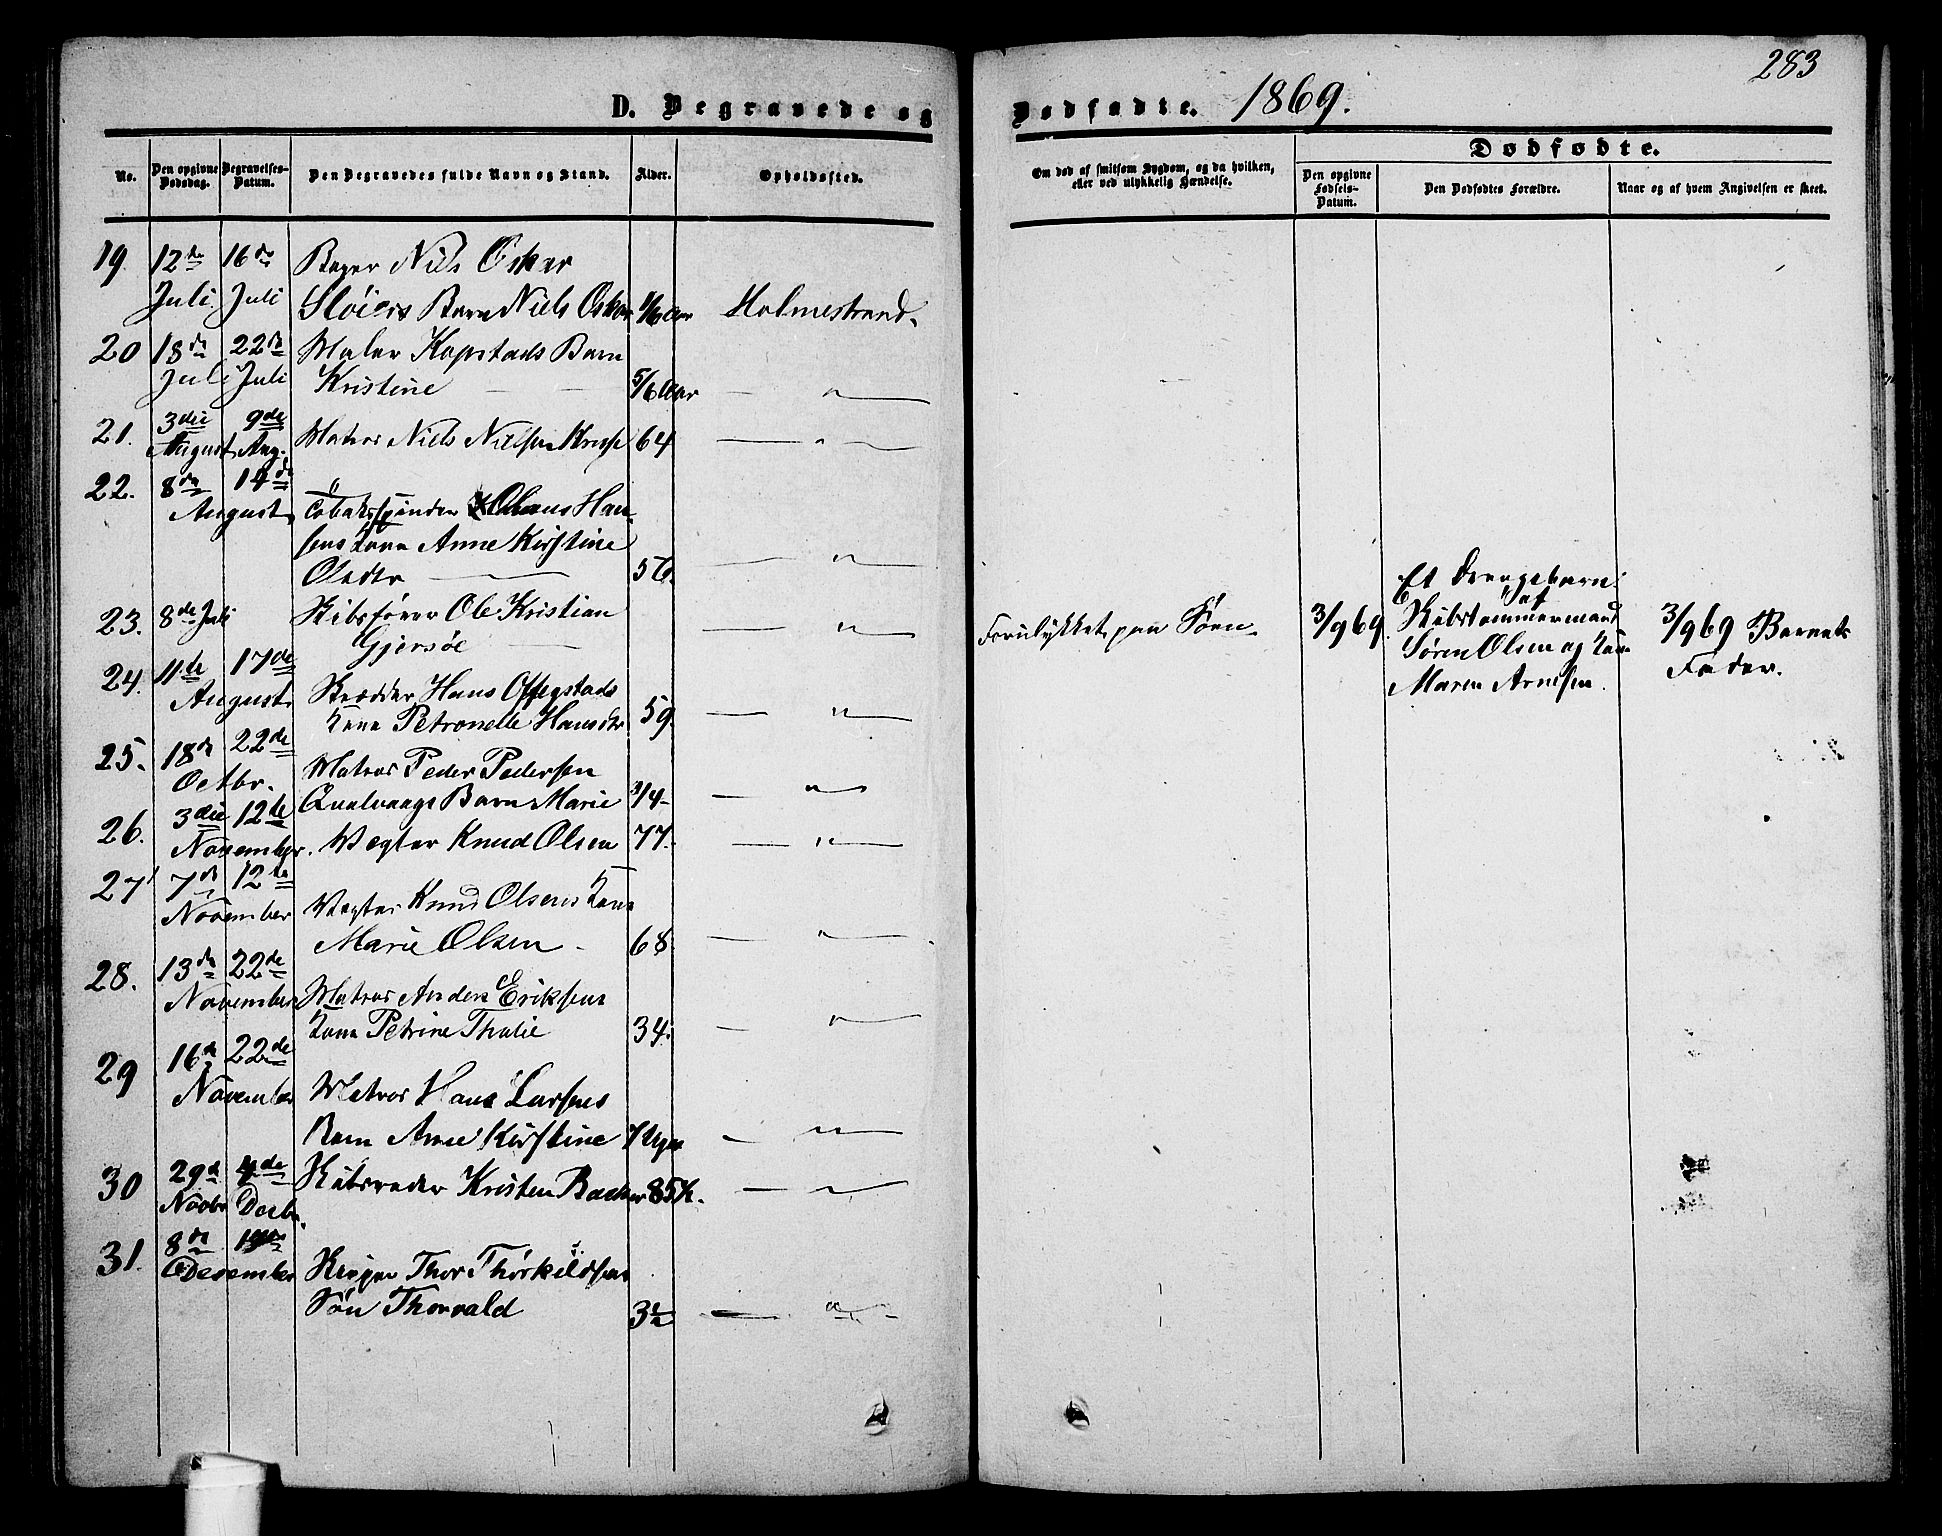 283
D. Begravede og Dødfødte. 1869.
No.
Den opgivne Dødsdag.
Begravelses-Datum.
Den Begravedes fulde Navn og Stand.
Alder.
Opholdssted.
Om død af smitsom Sygdom, og da hvilken,
eller ved ulykkelig Hændelse.
Dødfødte.
Den opgivne Fødsels-Datum.
Den Dødfødtes Forældre.
Naar og af hvem Angivelsen er skeet.
19. 12te 16de Bager Nils Oskar
Juli Juli Sløiers Barn Niels Oskar 1/6 Aar Holmestrand.
20 18de 22de Maler Kopstads Barn
Juli Juli Kristine — — 5/6 Aar — "
21. 3die 9de Matros Niels Nielsen Kruse 64 — "
August Aug.
22. 8de 14de
August. Tobaksspinder Olaus Han-
sens Kone Anne Kirstine
Olsdtr — 56. — "
23. 8de Juli Skibsfører Ole Kristian
Gjersøe — — " Forulykket paa Søen.
24. 11te 17de
August. Skrædder Hans Offigstads
Kone Petronelle Hansdtr 59. — "
25. 18de 22de
Octbr. Matros Peder Pedersen
Qvalvaags Barn Marie 3/4 — "
26. 3die 12te
November. Vægter Knud Olsen 77. — "
27 7de 12te
November Vægter Knud Olsens Kone
Marie Olsen — 68. — "
28. 13de 22de
November Matros Anders Eriksens
Kone Petrine Thalie 34. — "
29 16de 22de
November Matros Hans Larsens
Barn Anne Kirstine 7 Uger — "
30 29de 4de Skibsreder Kristen Backer 85 — "
Novbr Decbr.
31. 8de
Desember Thor Thorkildsens
Søn Thorvald 3½ — "
3/9 69. Et Drengebarn
af
Skibstømmermand
Søren Olsen og Kone
Maren Arnesen.
3/9 69 Barnets
Fader.